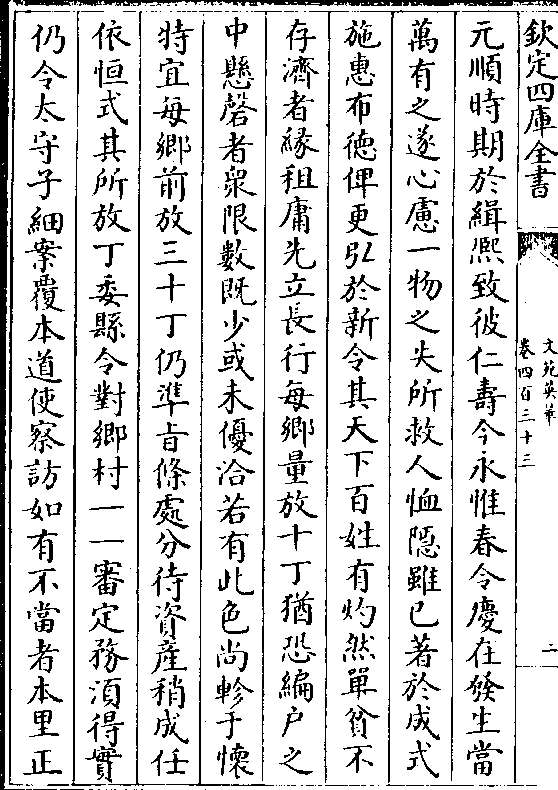 欽定四庫全書
文苑英華
卷四百三十三
二
元順時期於緝熙致彼仁壽今永惟春令慶在發生當
萬有之遂心慮一物之失所救人恤隱雖已著於成式
施惠布德俾更弘於新令其天下百姓有灼然單貧不
存濟者緣租庸先立長行每鄉量放十丁猶恐編户之
中懸磬者衆限數既少或未優洽若有此色尚軫于懷
特宜每鄉前放三十丁仍準㫖條處分待資産稍成任
依恒式其所放丁委縣令對鄉村一一審定務湏得實
仍令太守子細案覆本道使察訪如有不當者本里正